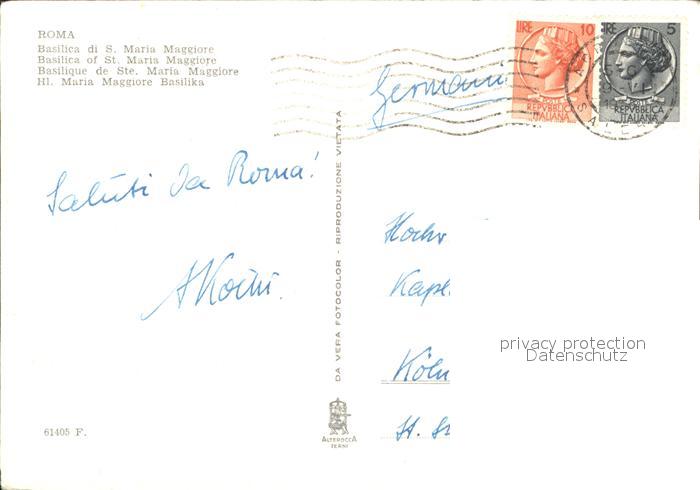 ROMA
Basilica di S. Maria Maggiore
Basilica of St. Maria Maggiore
Basilique de Ste. Maria Maggiore
Hl. Maria Maggiore Basilika
LIRE 10
REPVBBLICA
ITALIANA
LIRE 5
REPVBBLICA
ITALIANA
Germani
Saluti da Roma!
DA VERA FOTOCOLOR - RIPRODUZIONE VIETATA
Hochw
Kapl.
privacy protection
Datenschutz
Köln
St.
61405 F.
ALTEROCCA
TERNI